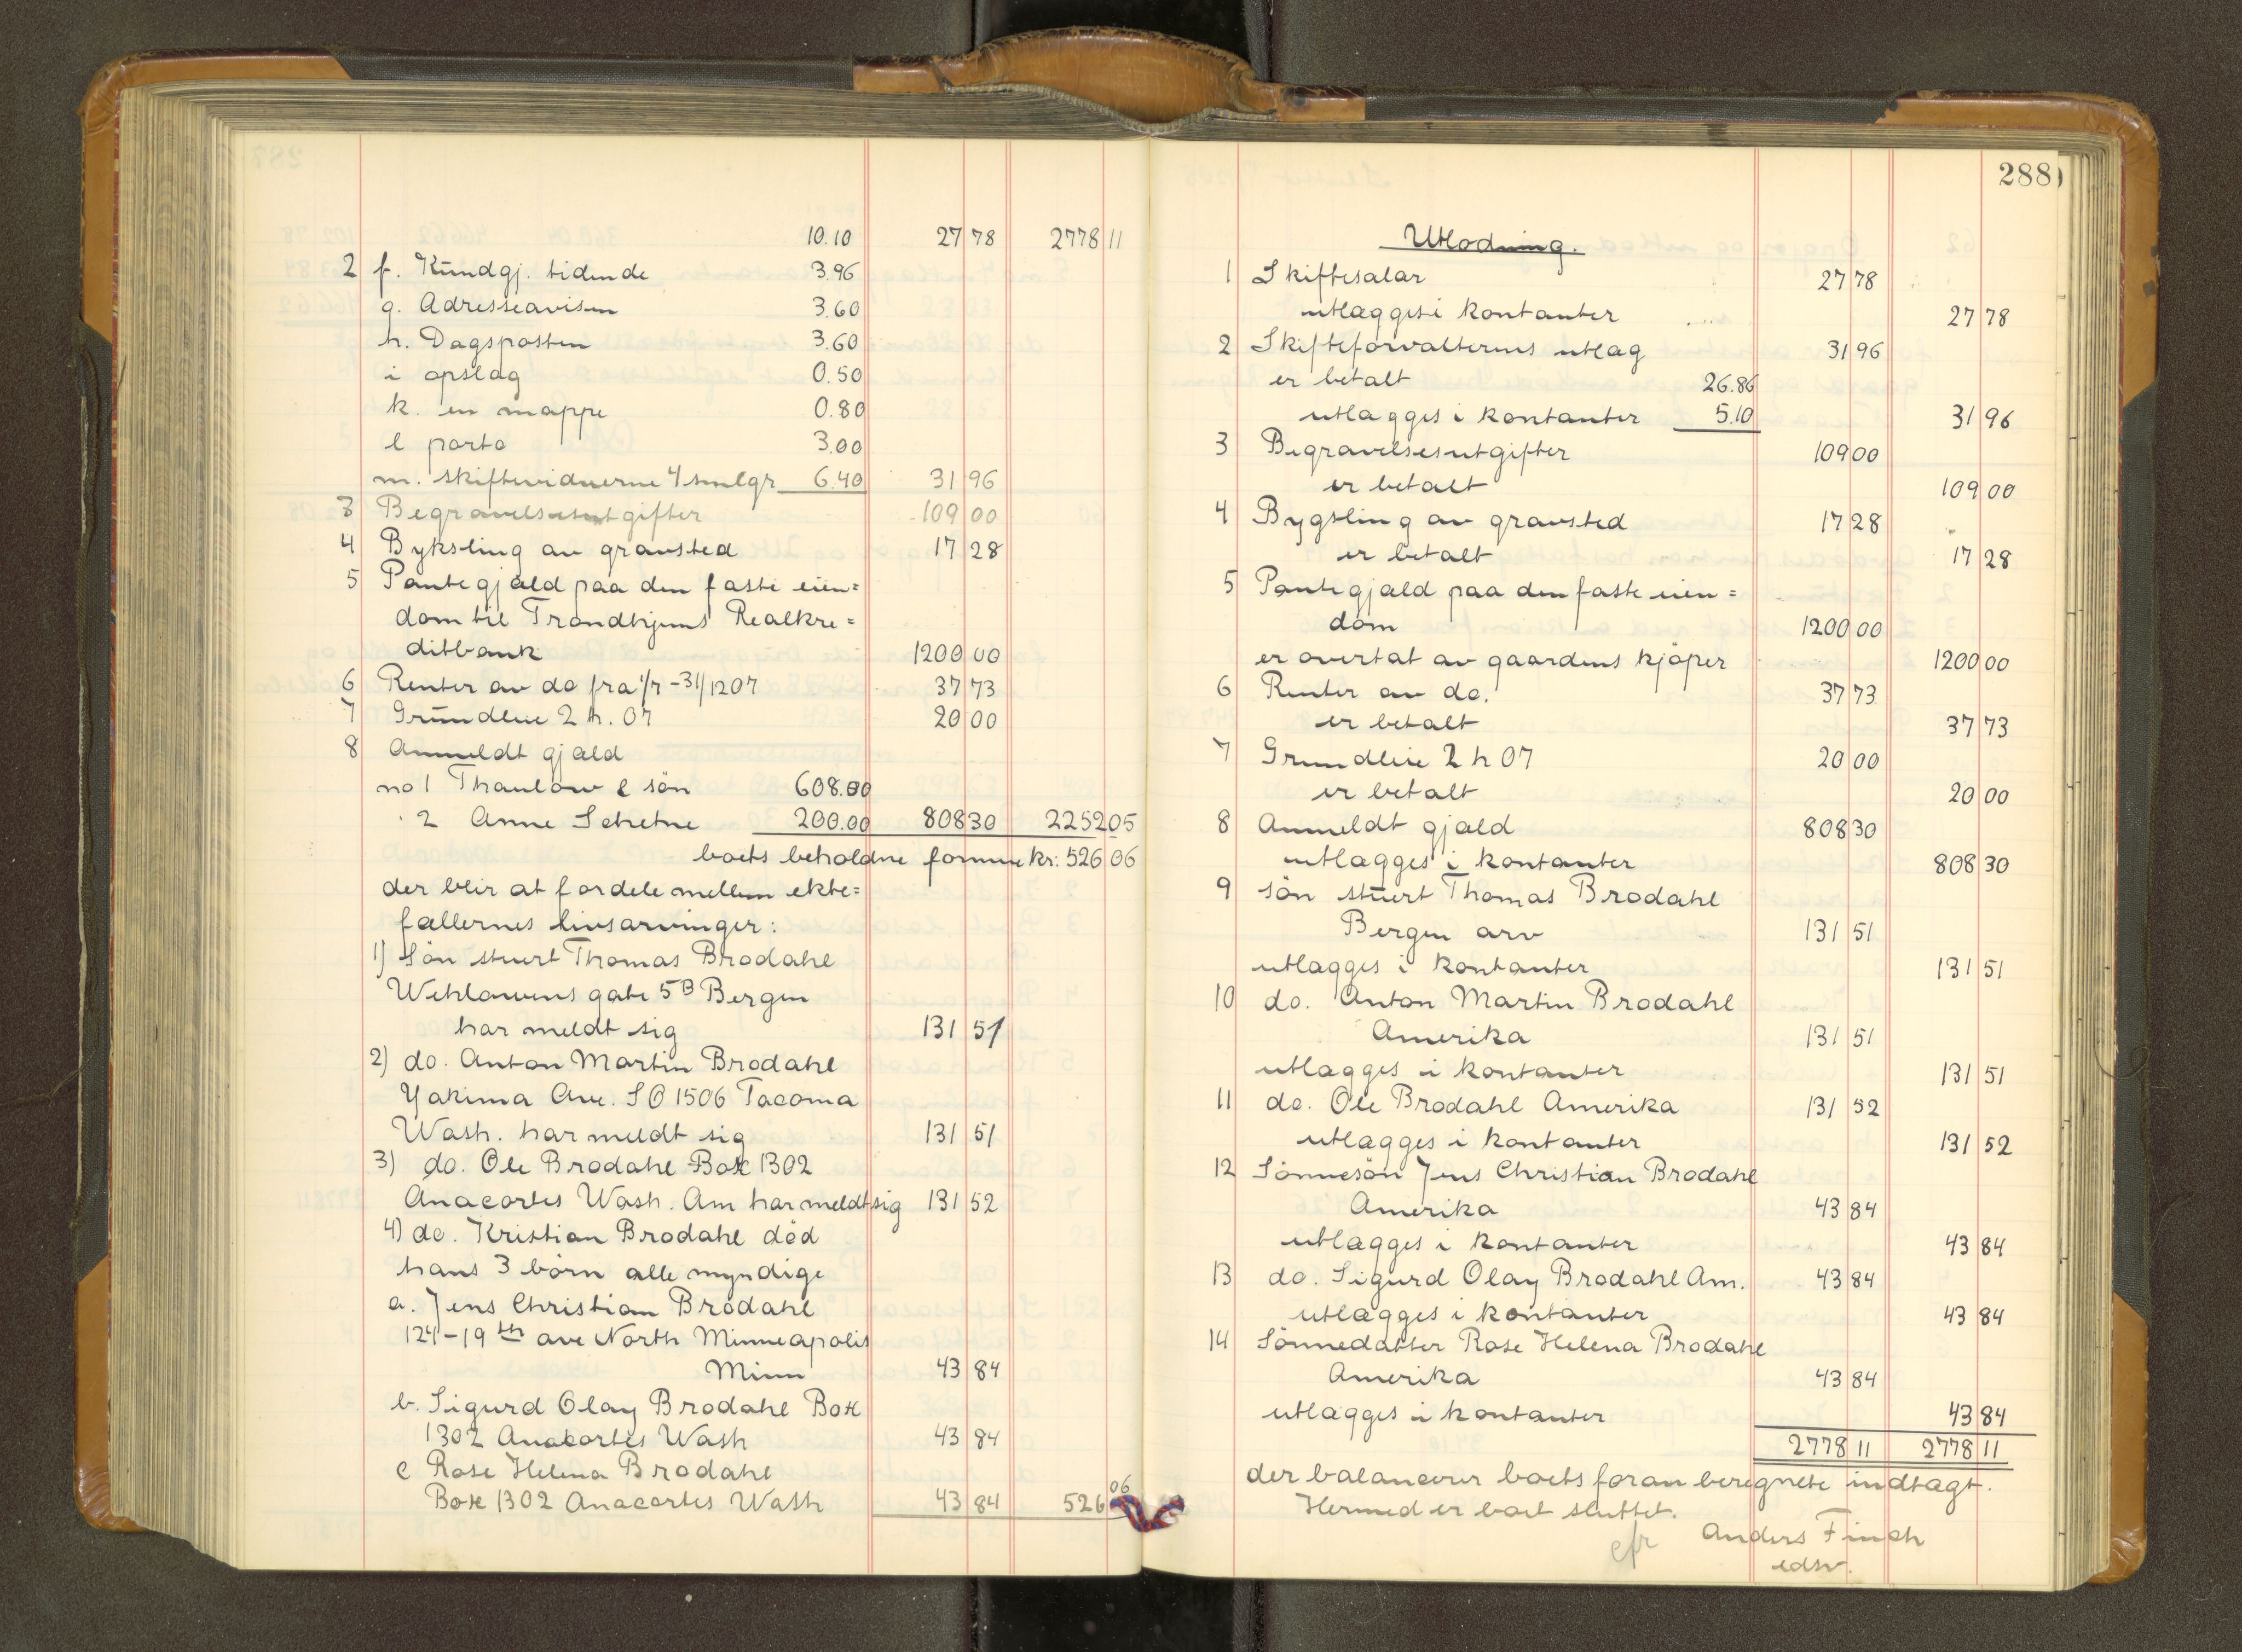 10.10 27 78 2778 11
2 f. Kundgj. tidende 3.96
g. Adresseavisen 3.60
h. Dagsposten 3.60
i opslag 0.50
k. en mappe 0.80
l porto 3.00
m. skiftevidnerne 4 smlgr 6.40 31 96
3 Begravelsesutgifter 109 00
4 Byksling av gravsted 17 28
5 Pantegjæld paa den faste eien=
dom til Trondhjems Realkre=
ditbank 1200 00
6 Renter av do fra 1/7 - 31/12 07 37 73
7 Grundleie 2 h. 07 20 00
8 Anmeldt gjæld
no 1 Thaulow & søn 608.30
2 Anne Schetne 200.00 808 30 2252 05
boets beholdne formue kr: 526 06
der blir at fordele mellem ekte=
fællernes livsarvinger:
1) Søn stuert Thomas Brodahl
Wehlowens gate 5B Bergen
har meldt sig 131 51
2) do. Anton Martin Brodahl
Yakima Ave. SO 1506 Tacoma
Wash. har meldt sig 131 51
3) do. Ole Brodahl Box 1302
Anacortes Wash. Am har meldt sig 131 52
4) do. Kristian Brodahl død
hans 3 børn alle myndige
a. Jens Christian Brodahl
124-19th ave North Minneapolis
Minn 43 84
b. Sigurd Olay Brodahl Box
1302 Anacortes Wash 43 84
c Rose Helena Brodahl
Box 1302 Anacortes Wash 43 84 526 06
288
Utlodning.
1 Skiftesalær 27 78
utlægges i kontanter 27 78
2 Skifteforvalterens utlæg 31 96
er betalt 26.86
utlægges i kontanter 5.10 31 96
3 Begravelsesutgifter 109 00
er betalt 109 00
4 Bygsling av gravsted 17 28
er betalt 17 28
5 Pantegjæld paa den faste eien=
dom 1200 00
er overtat av gaardens kjøper 1200 00
6 Renter av do. 37 73
er betalt 37 73
7 Grundleie 2 h 07 20 00
er betalt 20 00
8 Anmeldt gjæld 808 30
utlægges i kontanter 808 30
9 søn stuert Thomas Brodahl
Bergen arv 131 51
utlægges i kontanter 131 51
10 do. Anton Martin Brodahl
Amerika 131 51
utlægges i kontanter 131 51
11 do. Ole Brodahl Amerika 131 52
utlægges i kontanter 131 52
12 Sønnesøn Jens Christian Brodahl
Amerika 43 84
utlægges i kontanter 43 84
13 do. Sigurd Olay Brodahl Am. 43 84
utlægges i kontanter 43 84
14 Sønnedatter Rose Helena Brodahl
Amerika 43 84
utlægges i kontanter 43 84
2778 11 2778 11
der balancerer boets foran beregnete indtægt.
Hermed er boet sluttet.
cfr Anders Finch
edsv.